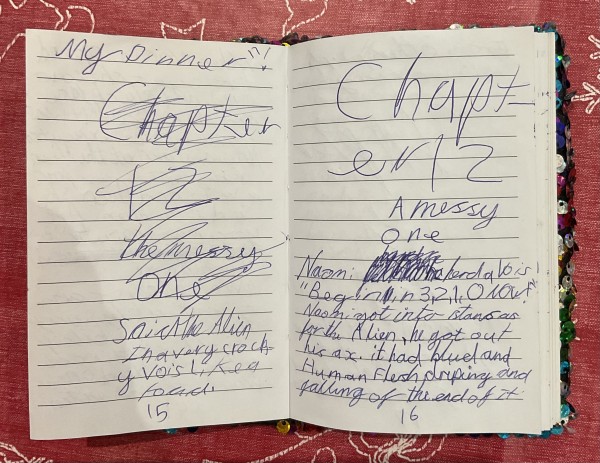 My Dinner"!
Chapter
12
the messy
one
Snick the Alien
In a very crack
y Vois Like a
toad.
15
Chapt-
er 12
A messy
one
Naomi herd a Vois
"Begin in 3,2,1,0 now"
Naomi not into islans as
for the Alien, he got out
his ax. it had blued and
Human Flesh driping and
falling of the end of it.
16